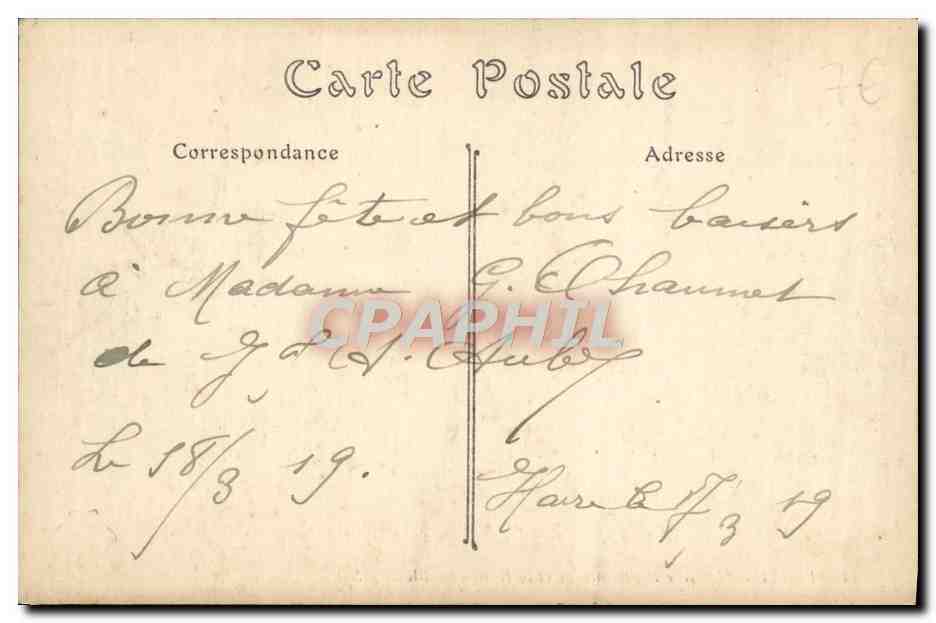 Carte Postale
7€
Correspondance
Adresse
Bonne fête et bons baisers
à Madame G. Chaumet
CPAPHIL
de
Le 18/3 19.
le 17/3 19